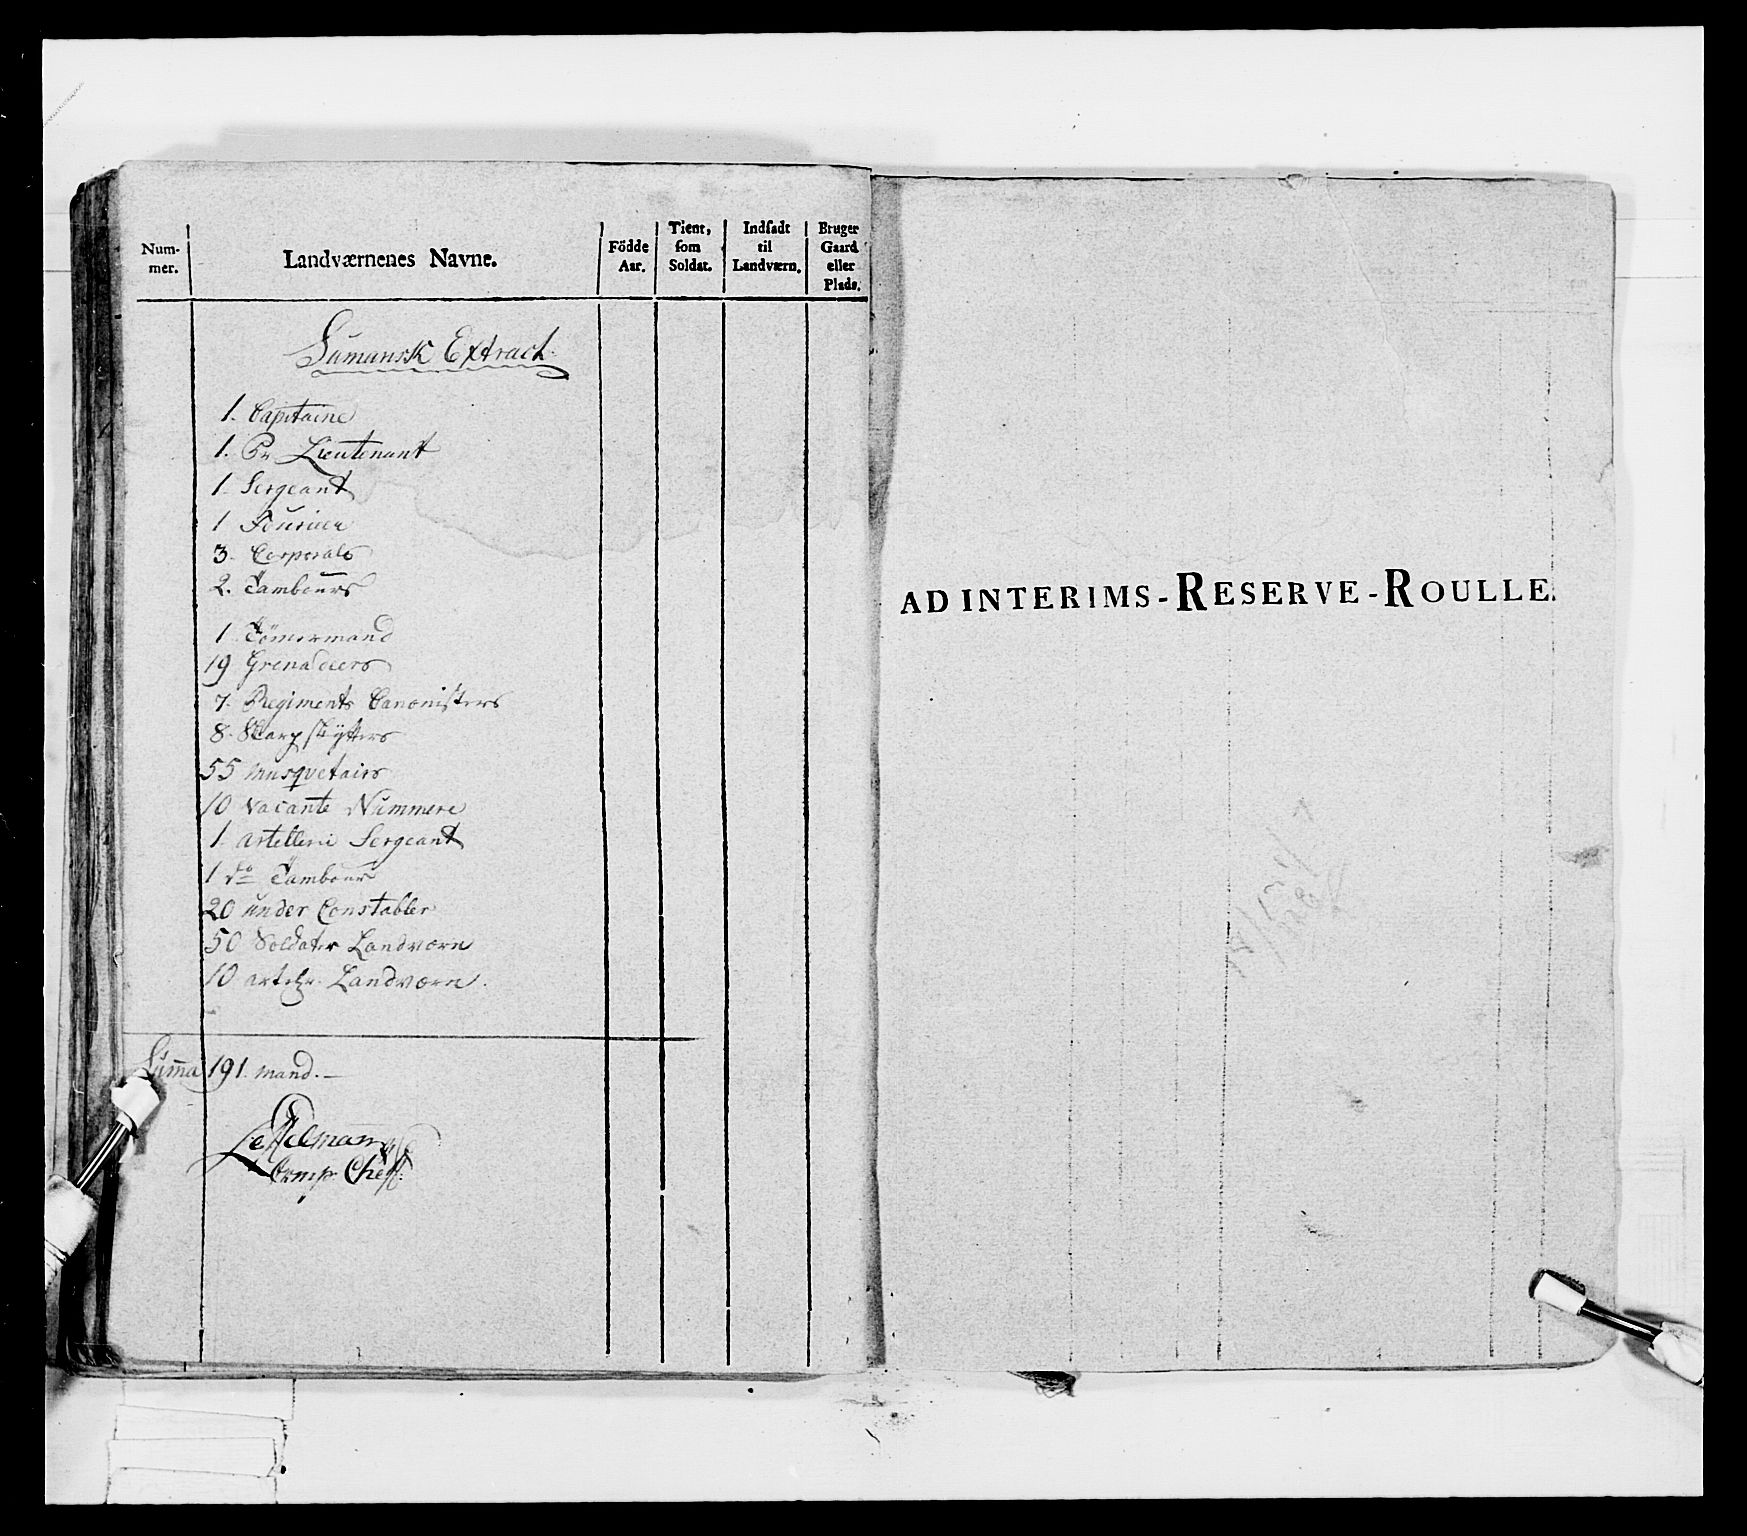 Num-
mer.
Landværnenes Navne.
Födde
Aar.
Tient,
som
Soldat.
Indsadt
til
Landværn.
Bruger
Gaard
eller
Plads.
Sumansk Extract
1. Capitaine
1. Pr Lieutenant
1. Sergeant
1 Fourier
3. Corporals
2. Tambours
1 Tömermand
19 Grenadeers
7. Regiments Canonisters
8. Skarpskÿtters
55 musquetairs
10 vacante Nummere
1 Artelleri Sergeant
1 do Tambour
20 under Constabler
50 Soldater Landværn
10 artelr. Landværn.
Suma 191 mand.—
Comp Cheff.
AD INTERIMS-RESERVE-ROULLE.